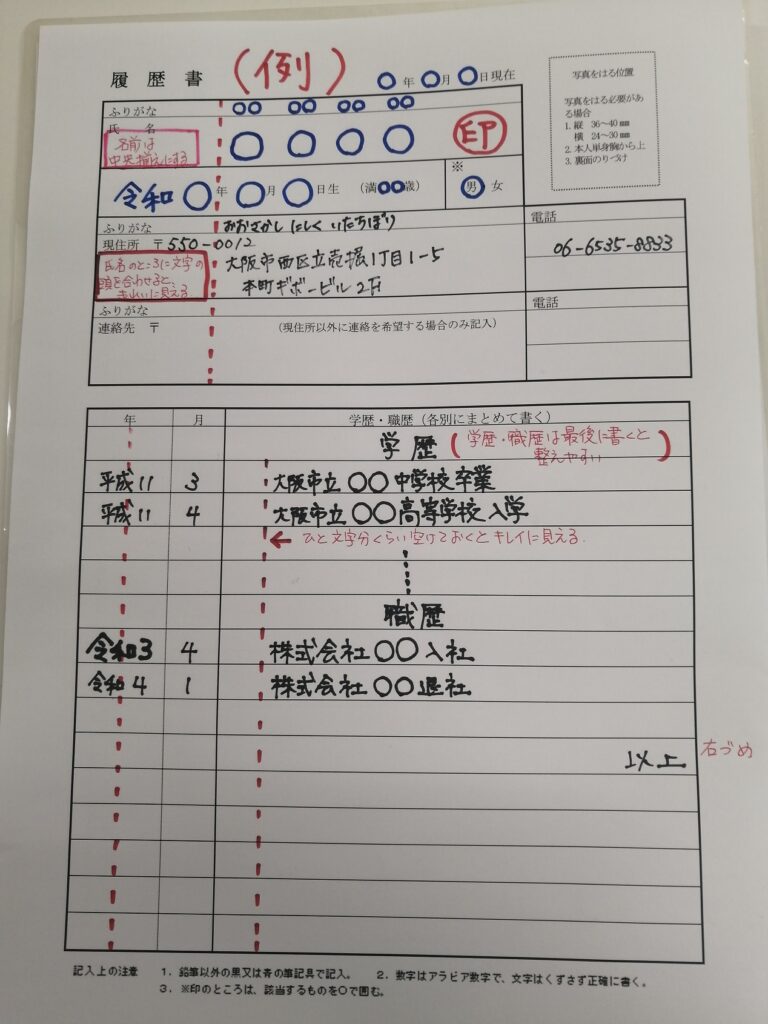 履歴書 (例) 〇年〇月〇日現在
写真をはる位置
写真をはる必要がある場合
1. 縦 36～40㎜
横 24～30㎜
2. 本人単身胸から上
3. 裏面のりづけ
ふりがな 〇〇 〇〇 〇〇 〇〇
氏 名 〇 〇 〇 〇 印
名前は
中央揃えにする
令和〇年〇月〇日生 (満〇〇歳) ※ 男 女
ふりがな おおさかし にしく いたちぼり
電話
現住所 〒550-0012
06-6535-8833
大阪市西区立売堀1丁目1-5
本町ギボービル2F
氏名のところに文字の
頭を合わせると、
キレイに見える
ふりがな
電話
連絡先 〒 (現住所以外に連絡を希望する場合のみ記入)
年 月 学歴・職歴 (各別にまとめて書く)
学歴 (学歴・職歴は最後に書くと
整えやすい)
平成11 3 大阪市立〇〇中学校卒業
平成11 4 大阪市立〇〇高等学校入学
← ひと文字分くらい空けておくとキレイに見える.
職歴
令和3 4 株式会社〇〇入社
令和4 1 株式会社〇〇退社
以上 右づめ
記入上の注意 1. 鉛筆以外の黒又は青の筆記具で記入。 2. 数字はアラビア数字で、文字はくずさず正確に書く。
3. ※印のところは、該当するものを〇で囲む。